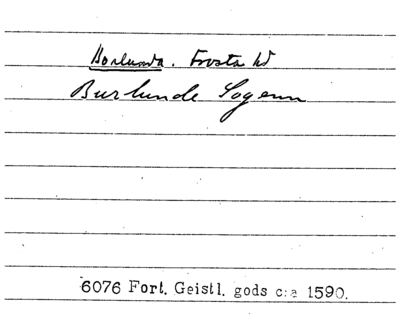 Horlunda. Frosta hd
Burlunde Sogenn
6076 Fort. Geistl. gods c:a 1590.